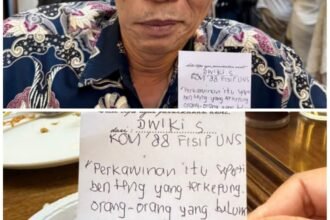 DWIKI S
KOM '88 FISIP UNS
"Perkawinan itu seperti
benteng yang terkepung.
orang-orang yang
DWIKI S
dari:
KOM '88 FISIP UNS
"Perkawinan itu seperti
benteng yang terkepung.
orang-orang yang belum